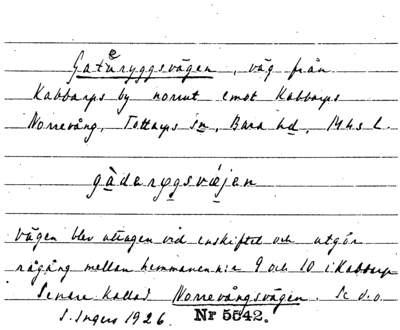 Gateryggsvägen, väg från
Kabbarps by norrut emot Kabbarps
Norrevång, Tottarps sn, Bara hd, M.
gàderyggsvæjen
vägen blev uttagen vid enskiftet och utgör
rågång mellan hemmanen n:r 9 och 10 i Kabbarp
Senare kallad Norrevångsvägen. Se d.o.
S. Ingers 1926. Nr 5542.